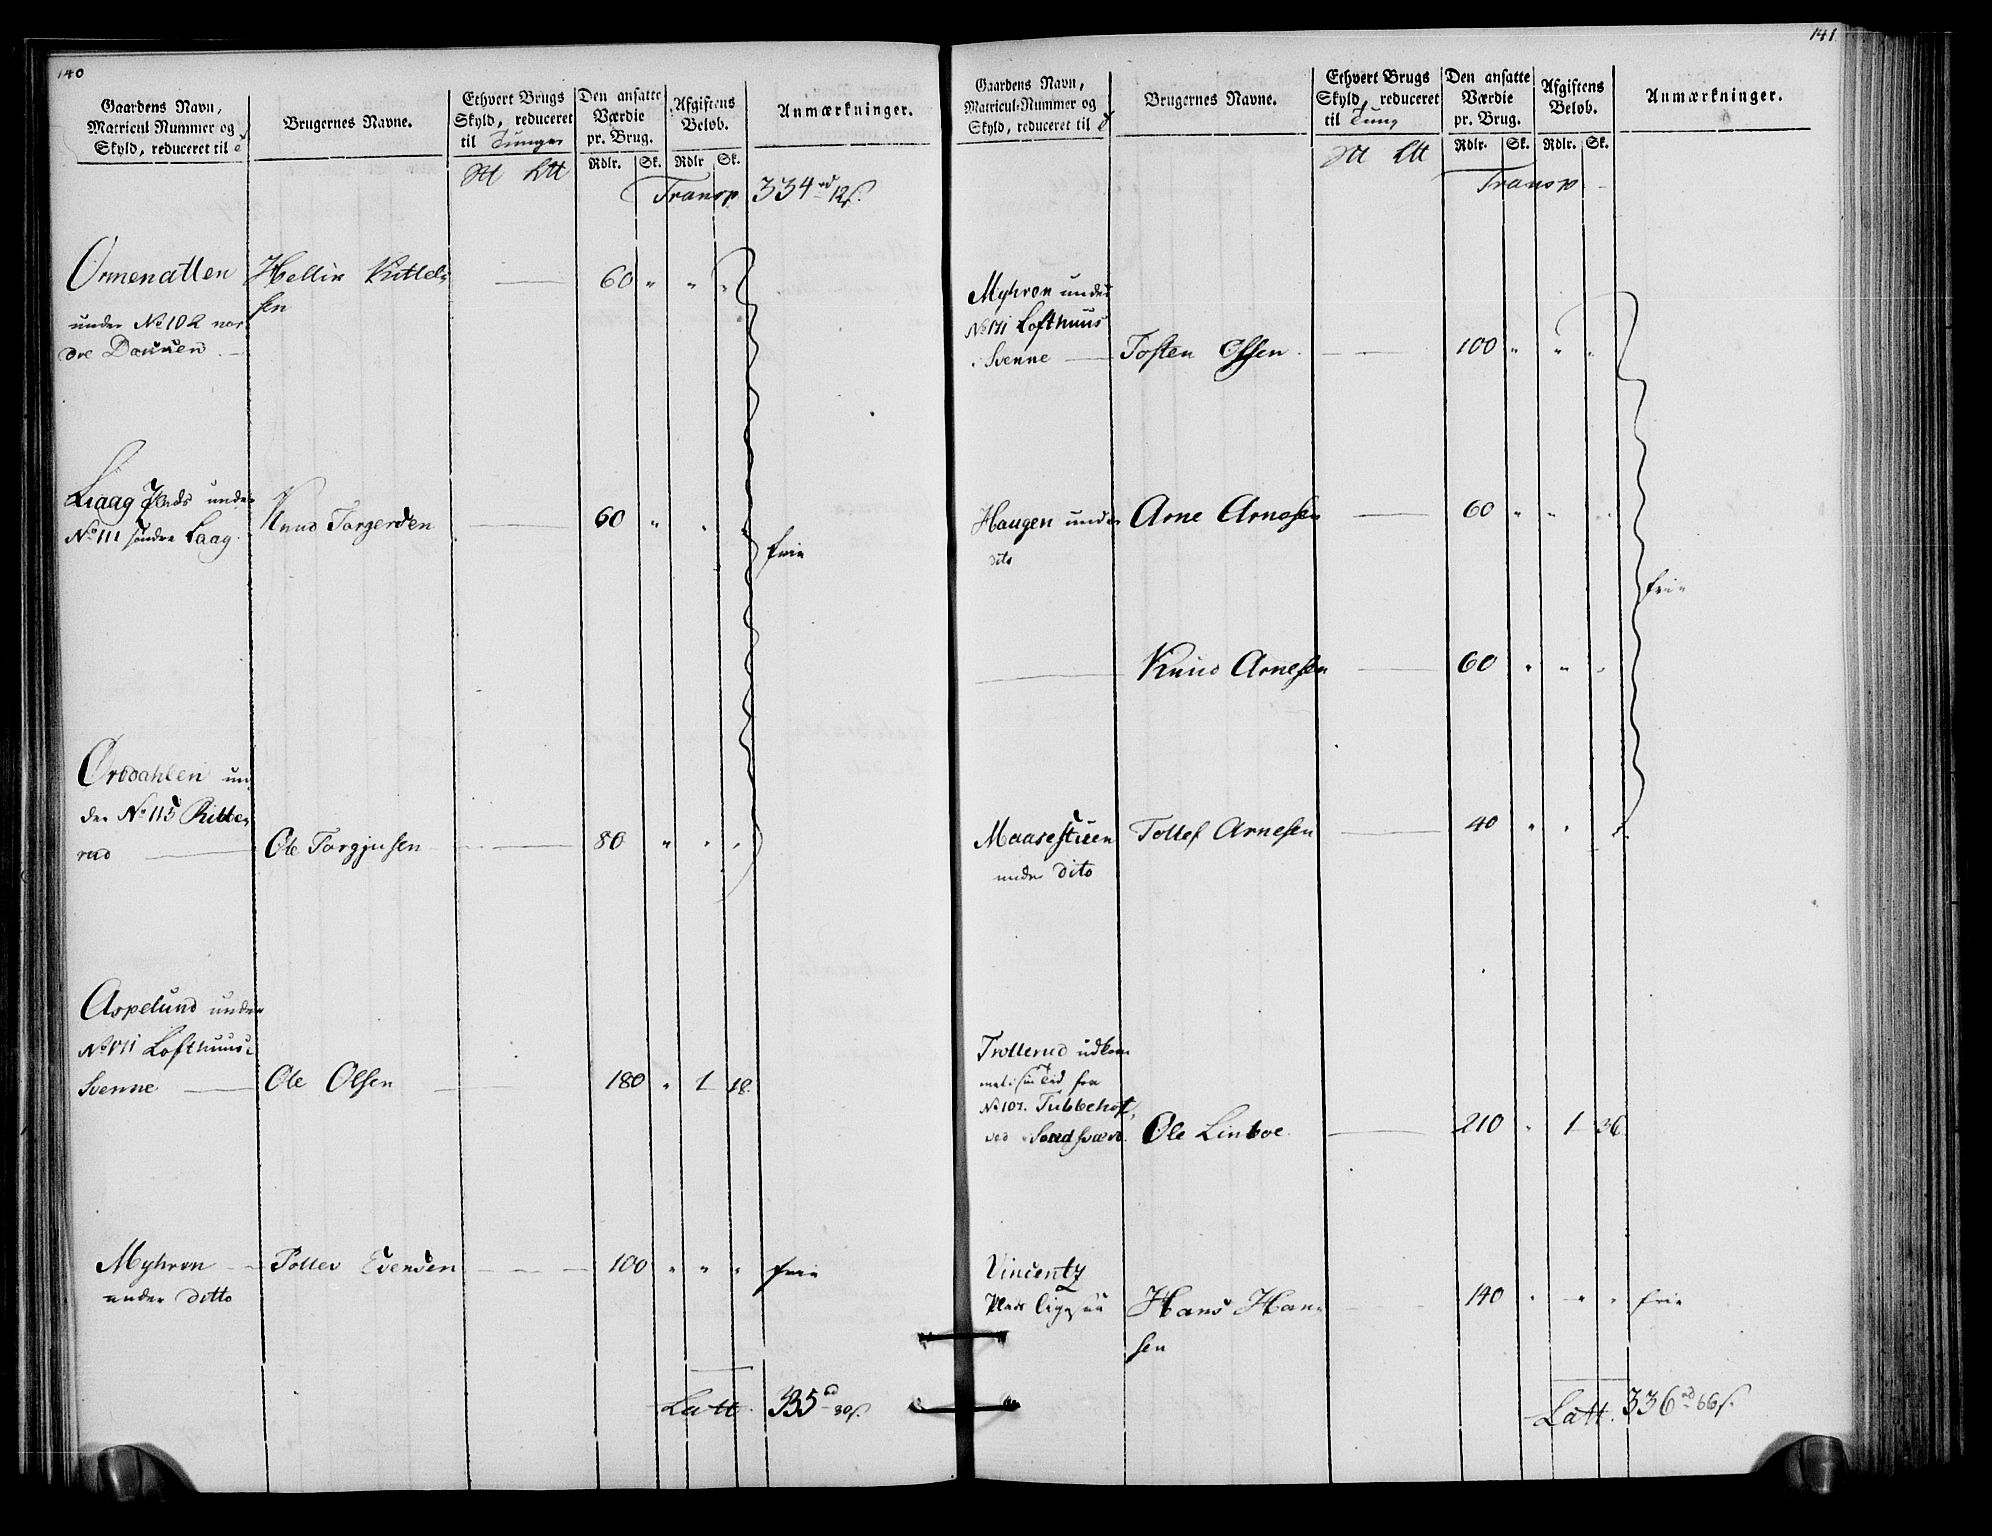 140
Gaardens Navn, Matricul Nummer og Skyld, reduceret til
Brugernes Navne.
Ethvert Brugs Skyld, reduceret til Tunge
Den ansatte Værdie pr. Brug.
Afgiftens Beløb.
Anmærkninger.
Rdlr. Sk. Rdlr Sk.
Transp 334 rd 12 s.
Ormenatten Hellik Kittel-
sen 60 " " "
under No 102 nor-
dre Daaen
Laag Plads under
No 111 søndre Laag Knud Torgersen 60 " " " frie
Ørddahlen un-
der No 115 Ritte-
rud Ole Torgjusen 80 " " "
Aspelund under
No 171 Lofthuus i
Svenne Ole Olsen 180 " 1 18
Myhren Tollev Evensen 100 " " " frie
under ditto
Latt. 335 rd 30 s.
141
Gaardens Navn, Matricul-Nummer og Skyld, reduceret til
Brugernes Navne.
Ethvert Brugs Skyld, reduceret til Tung
Den ansatte Værdie pr. Brug.
Afgiftens Beløb.
Anmærkninger.
Rdlr. Sk. Rdlr. Sk.
Transp
Myhren under
No 171 Lofthuus
Svenne Tosten Olsen 100 " " "
Haugen under Arne Arnesen 60 " "
dito
frie
Knud Arnesen 60 " " "
Maasestuen Tollef Arnesen 40 " " "
under dito
Trollerud udkom
No 107. Tubbehof,
ved Sandsværd. Ole Linboe 210 " 1 36
Vincentz
Plads Hans Han-
sen 140 " " " frie
Latt. 336 rd 66 s.